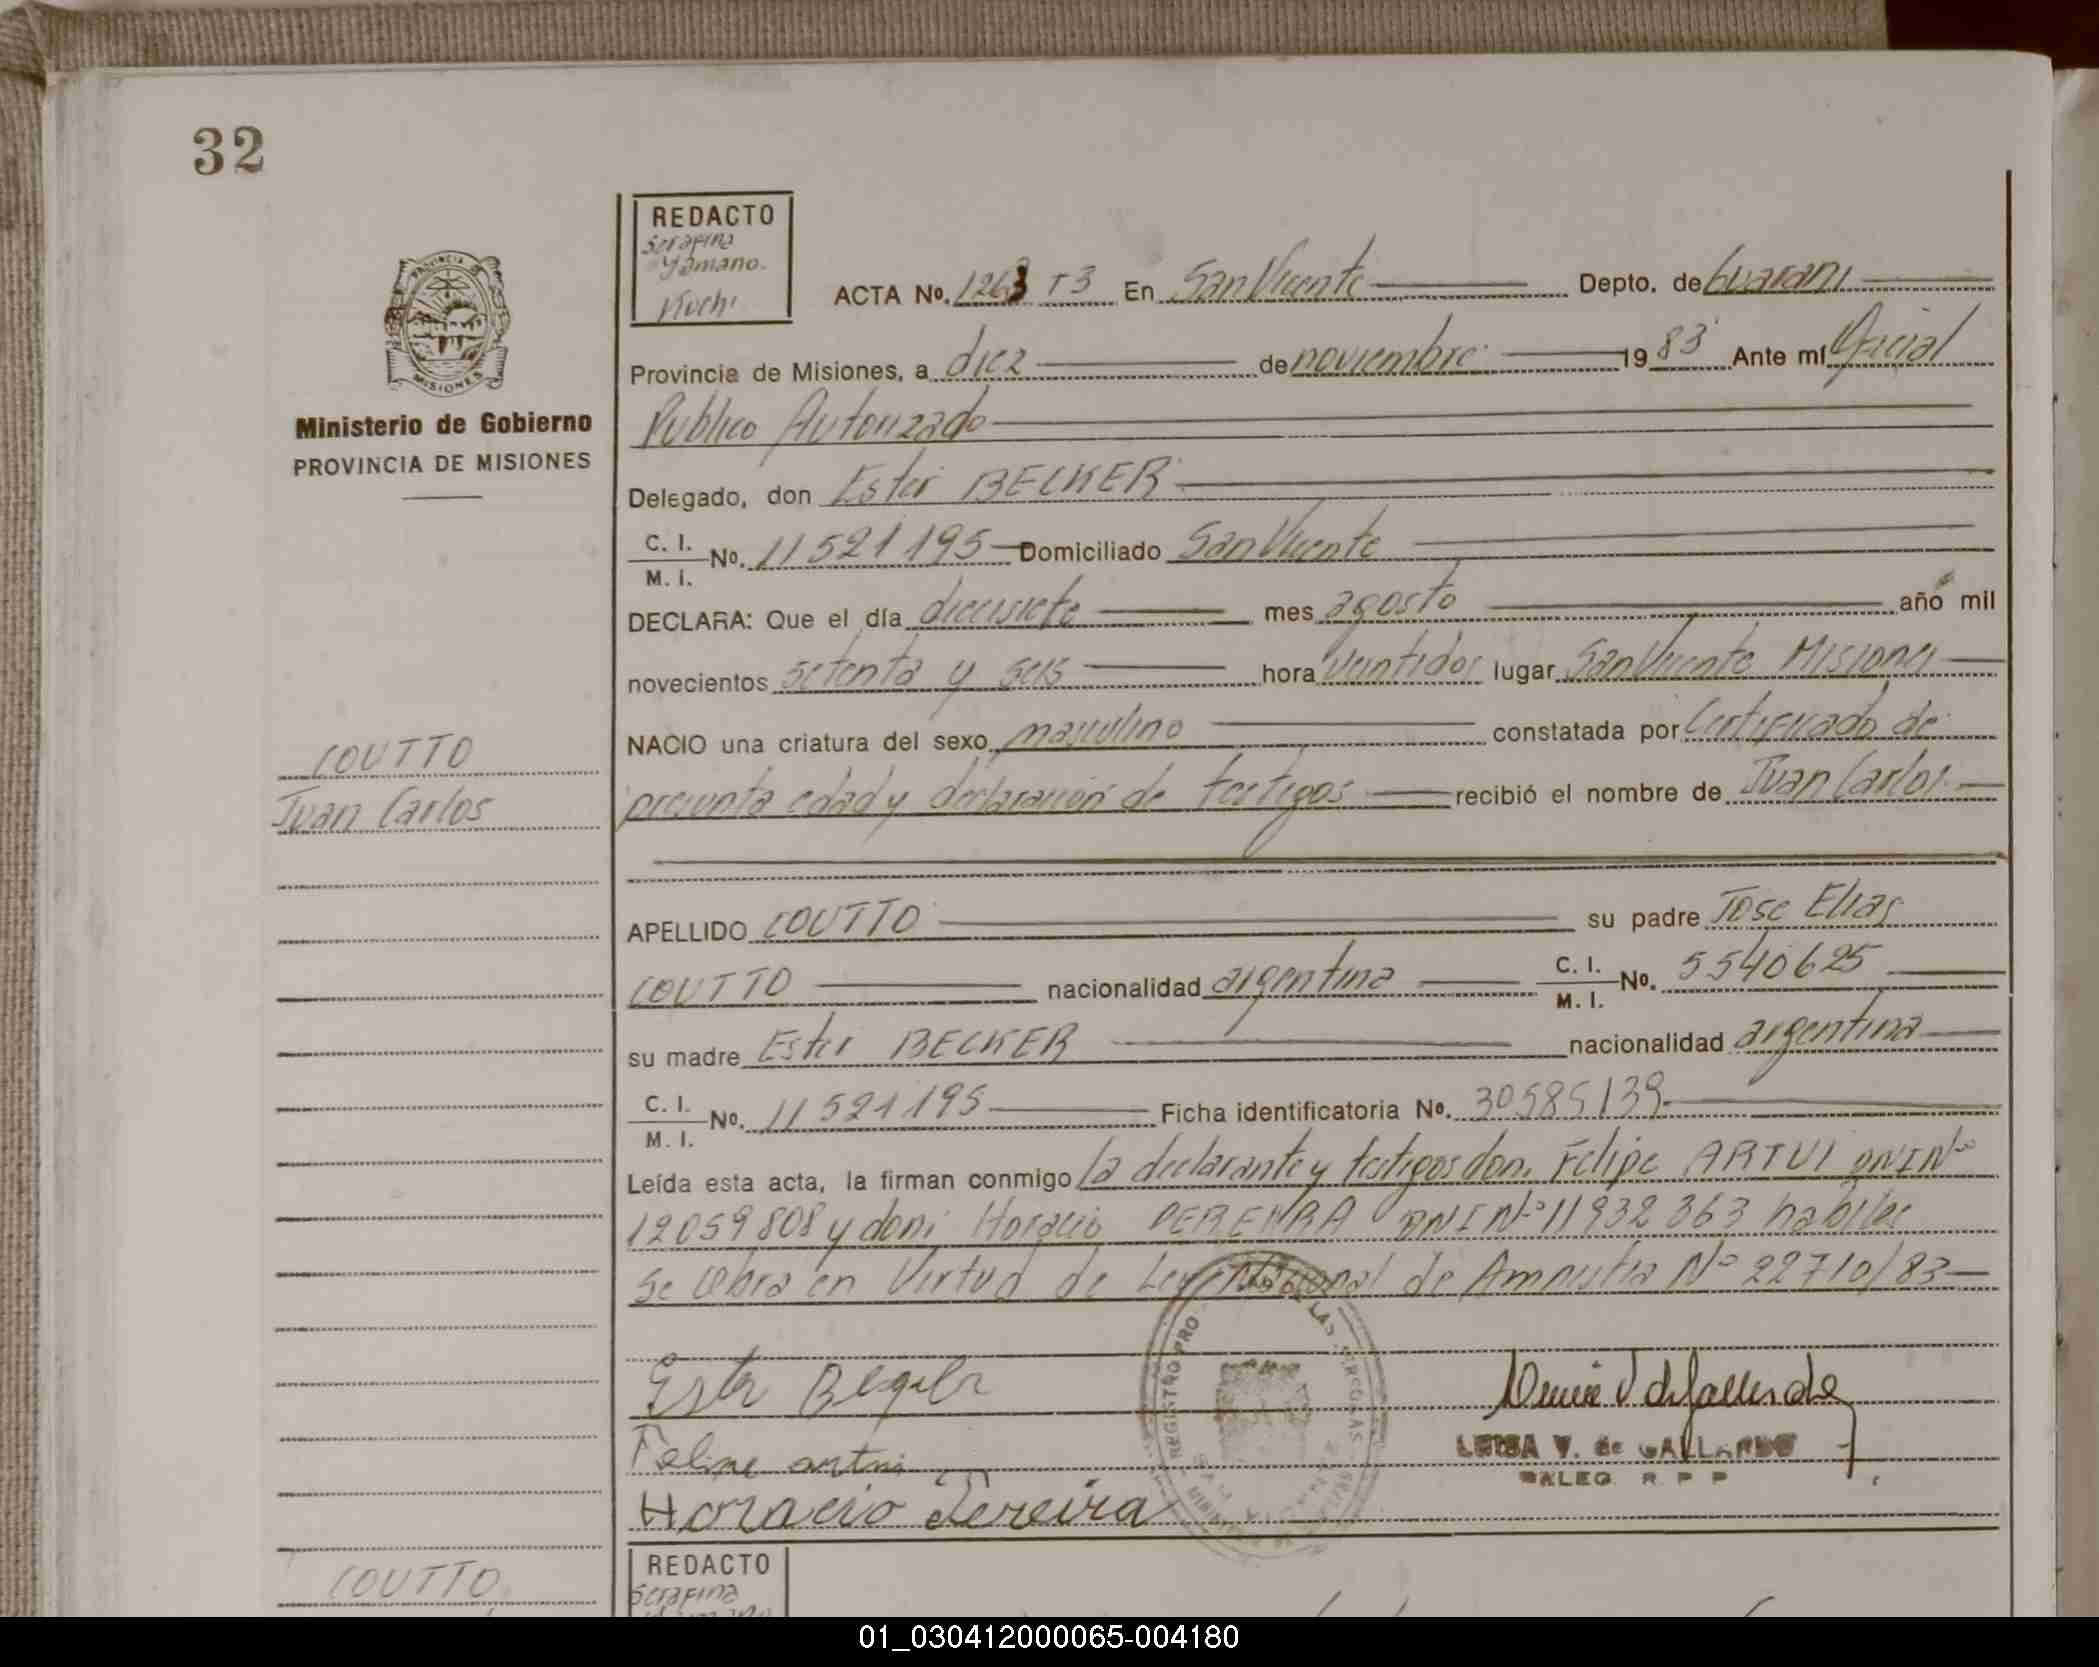 32
REDACTO
Serafina
Yamano.
Kuchi
PROVINCIA DE
MISIONES
Ministerio de Gobierno
PROVINCIA DE MISIONES
ACTA No. 1263 T3 En San Vicente Depto. de Guarani
Provincia de Misiones, a diez de noviembre 1983 Ante mí Oficial
Publico Autorizado
Delegado, don Ester BECKER
C. I. / M. I. No. 11521195 Domiciliado San Vicente
DECLARA: Que el día diecisiete mes agosto año mil
novecientos setenta y seis hora veintidos lugar San Vicente Misiones
NACIO una criatura del sexo masculino constatada por Certificado de
presunta edad y declaración de testigos recibió el nombre de Juan Carlos
COUTTO
Juan Carlos
APELLIDO COUTTO su padre José Elias
COUTTO nacionalidad argentina C. I. / M. I. No. 5540625
su madre Ester BECKER nacionalidad argentina
C. I. / M. I. No. 11521195 Ficha identificatoria No. 30585139
Leída esta acta, la firman conmigo la declarante y testigos don: Felipe ARTUI DNI Nº
12059808 y don: Horacio PEREIRA DNI Nº 11932363 habiles
Se labra en Virtud de Ley Nacional de Amnistia Nº 22710/83
Ester
Felipe artui
Horacio Pereira
LUISA V. de GALLARDO
DALEG. R P P
REGISTRO PRO
DE LAS PERSONAS
REDACTO
Serafina
COUTTO
01_030412000065-004180